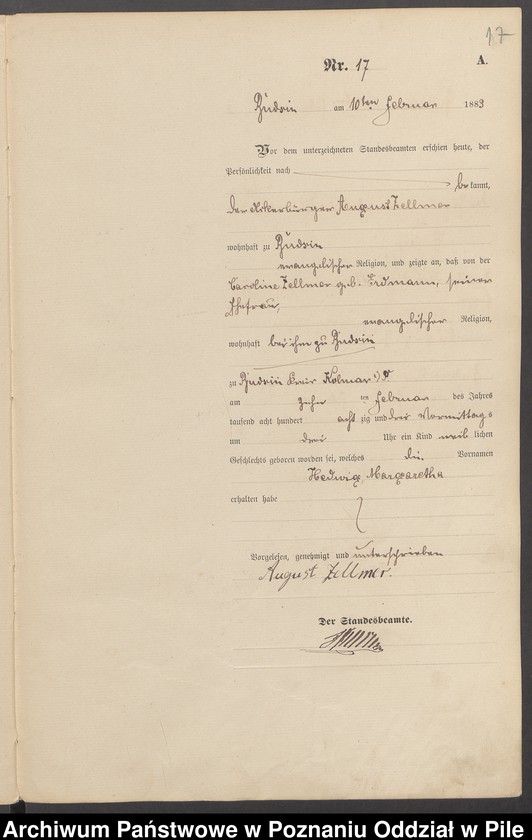 17
Nr. 17 A.
Budsin am 10ten Februar 1883
Vor dem unterzeichneten Standesbeamten erschien heute, der
Persönlichkeit nach
bekannt,
der Ackerbürger August Zellmer
wohnhaft zu Budsin
evangelischer Religion, und zeigte an, daß von der
Caroline Zellmer geb. Erdmann, seiner
Ehefrau,
evangelischer Religion,
wohnhaft bei ihm zu Budsin
zu Budsin Kreis Kolmar i/P
am zehn ten Februar des Jahres
tausend acht hundert acht zig und drei Vormittags
um drei Uhr ein Kind weib lichen
Geschlechts geboren worden sei, welches die Vornamen
Hedwig Margaretha
erhalten habe
Vorgelesen, genehmigt und unterschrieben
August Zellmer.
Der Standesbeamte.
Archiwum Państwowe w Poznaniu Oddział w Pile